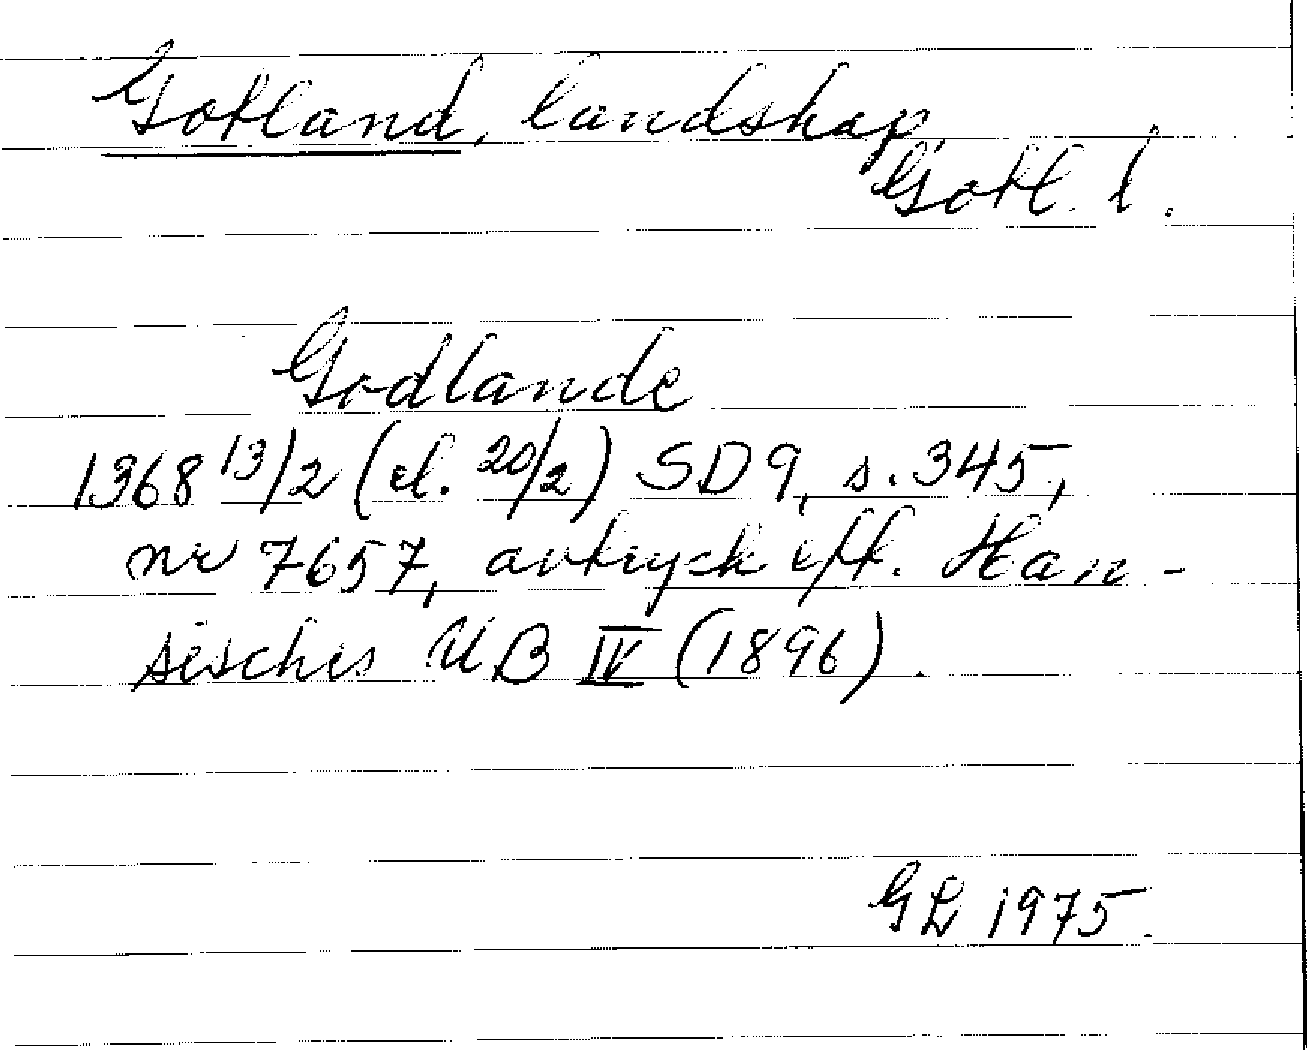 Gotland, landskap
Gotl. l.
Godlande
1368 13/2 (el. 20/2) SD 9, s. 345,
nr 7657, avtryck eft. Han-
sisches UB IV (1896).
GL 1975.